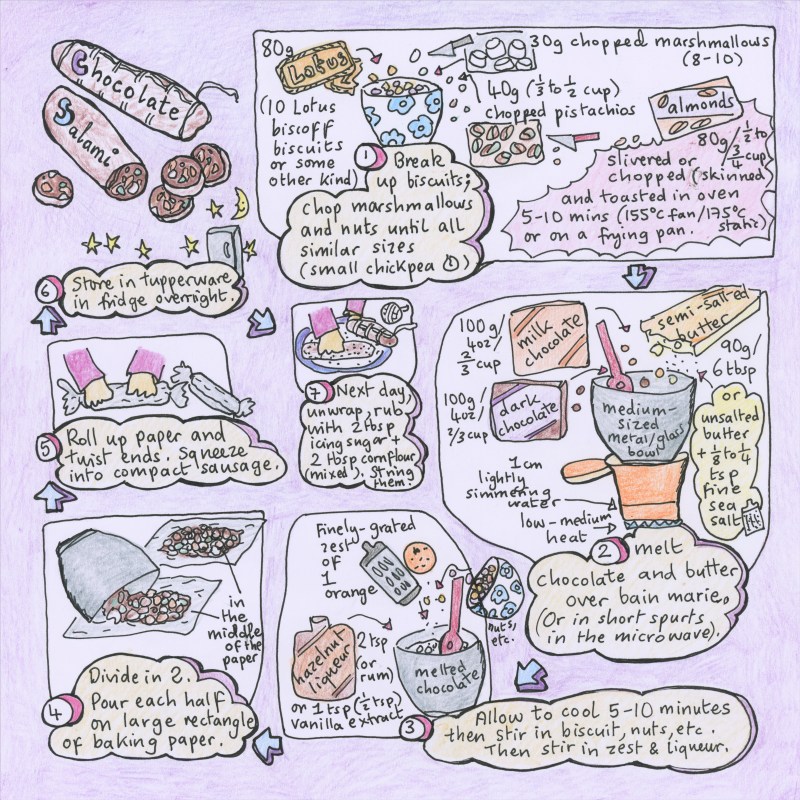 Chocolate
Salami
80g
Lotus
(10 Lotus
biscoff
biscuits
or some
other kind)
30g chopped marshmallows
(8-10)
40g (1/3 to 1/2 cup)
chopped pistachios
almonds
80g/ 1/2 to
3/4 cup
slivered or
chopped (skinned
and toasted in oven
5-10 mins (155°C fan/175°C
static)
or on a frying pan.
1 Break
up biscuits;
chop marshmallows
and nuts until all
similar sizes
(small chickpea)
100g/
4oz/
2/3 cup
milk
chocolate
semi-salted
butter
90g/
6 tbsp
100g/
4oz/
2/3 cup
dark
chocolate
medium-
sized
metal/glass
bowl
or
unsalted
butter
+ 1/8 to 1/4
tsp
fine
sea
salt
1cm
lightly
simmering
water
low-medium
heat
2 melt
chocolate and butter
over bain marie.
(Or in short spurts
in the microwave).
Finely-grated
zest
of
1
orange
hazelnut
liqueur
2 tsp
(or
rum)
or 1 tsp (1/2 tsp)
vanilla extract
nuts,
etc.
melted
chocolate
3 Allow to cool 5-10 minutes
then stir in biscuit, nuts, etc.
Then stir in zest & liqueur.
in
the
middle
of the
paper
4 Divide in 2.
Pour each half
on large rectangle
of baking paper.
5 Roll up paper and
twist ends. Squeeze
into compact sausage.
6 Store in tupperware
in fridge overnight.
7 Next day,
unwrap, rub
with 2 tbsp
icing sugar +
2 tbsp cornflour
(mixed). String
them.